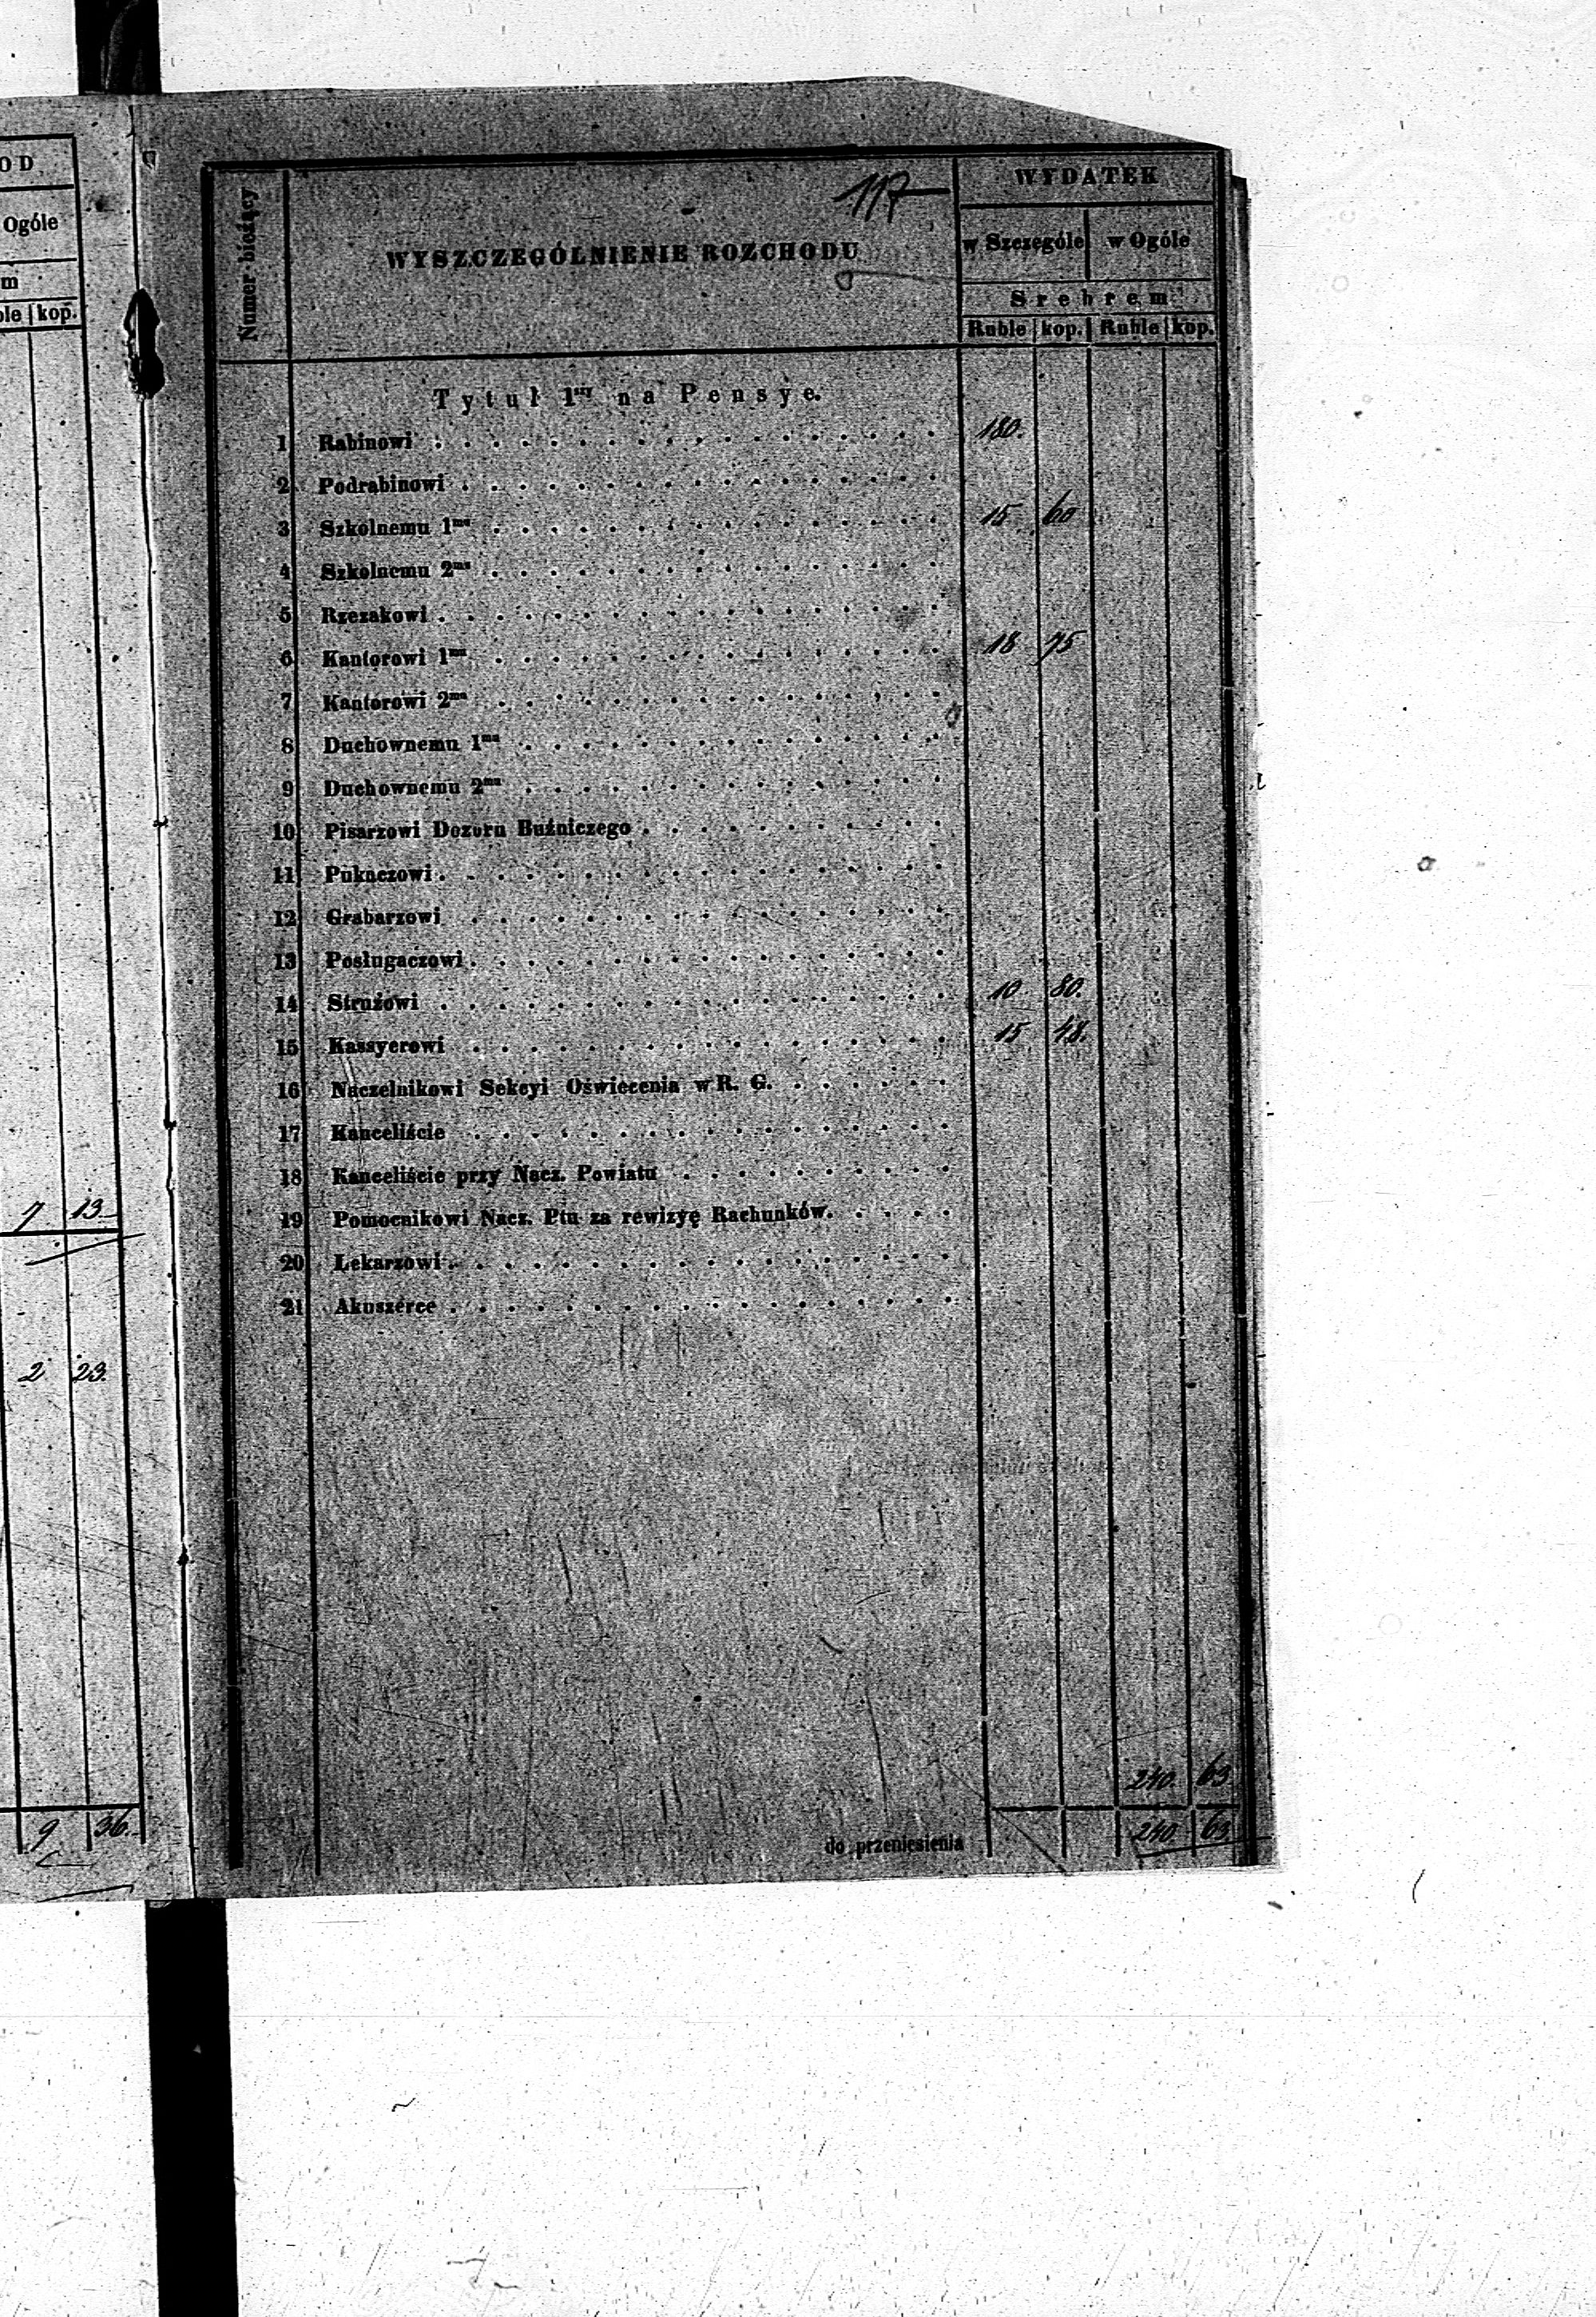 OD
Ogóle
m
ble kop.
7 13
2 23.
9 36.
117
Numer bieżący
WYSZCZEGÓLNIENIE ROZCHODU
WYDATEK
w Szczególe w Ogóle
Srebrem
Ruble kop. Ruble kop.
Tytuł 1ny na Pensye.
1 Rabinowi 180.
2 Podrabinowi
3 Szkolnemu 1mu 15 60
4 Szkolnemu 2mu
5 Rzezakowi
6 Kantorowi 1mu 18 75
7 Kantorowi 2mu
8 Duchownemu 1mu
9 Duchownemu 2mu
10 Pisarzowi Dozoru Bużniczego
11 Pukaczowi
12 Grabarzowi
13 Posługaczowi
14 Strużowi 10 80.
15 Kassyerowi 15 48.
16 Naczelnikowi Sekcyi Oświecenia w R. G.
17 Kanceliście
18 Kanceliście przy Nacz. Powiatu
19 Pomocnikowi Nacz. Ptu za rewizyę Rachunków.
20 Lekarzowi
21 Akuszerce
240. 63
do przeniesienia 240. 63